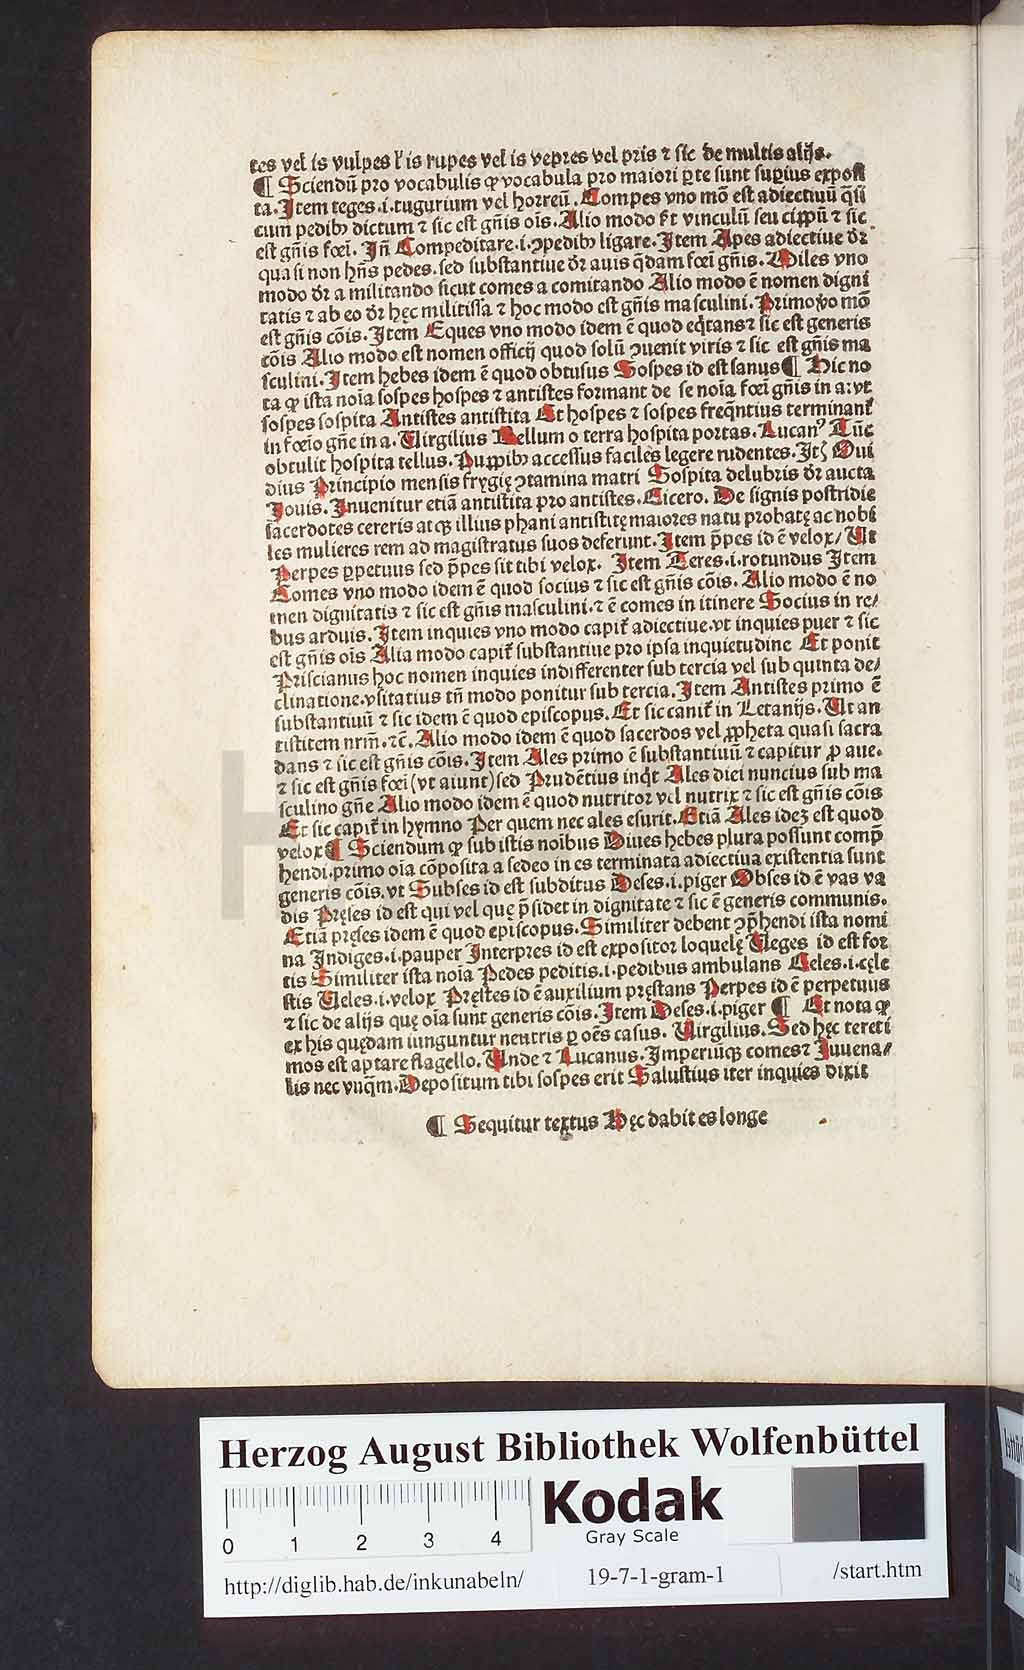 tes vel is vulpes ł is rupes vel is vepres vel pris ⁊ sic de multis alijs.
¶ Sciendū pro vocabulis ꝙ vocabula pro maiori ꝑte sunt suꝑius exposi
ta. Item teges .i. tugurium vel horreū. Compes vno mō est adiectiuū q̄si
cum pedibꝫ dictum ⁊ sic est gn̄is oīs. Alio modo ēt vinculū seu cipꝑū ⁊ sic
est gn̄is foei. Jn̄ Compeditare .i. ꝯpedibꝫ ligare. Item Apes adiectiue dr̄
quasi non hn̄s pedes. sed substantiue dr̄ auis q̄dam foei gn̄is. Miles vno
modo dr̄ a militando sicut comes a comitando Alio modo ē nomen digni
tatis ⁊ ab eo dr̄ hęc militissa ⁊ hoc modo est gn̄is masculini. Primo ꝟo mō
est gn̄is cōis. Item Eques vno modo idem ē quod eq̇tans ⁊ sic est generis
cōis Alio modo est nomen officij quod solū ꝯuenit viris ⁊ sic est gn̄is ma
sculini. Item hebes idem ē quod obtusus Sospes id est sanus ¶ Hic no
ta ꝙ ista noīa sospes hospes ⁊ antistes formant de se noīa foei gn̄is in a: vt
sospes sospita Antistes antistita Et hospes ⁊ sospes freq̄ntius terminant᷑
in foeīo gn̄e in a. Uirgilius Bellum o terra hospita portas. Lucanꝰ Tūc
obtulit hospita tellus. Puppibꝫ accessus faciles legere rudentes. Itꝫ Oui
dius Principio mensis frygię ꝯtamina matri Sospita delubris dr̄ aucta
Jouis. Inuenitur etiā antistita pro antistes. Cicero. De signis postridie
sacerdotes cereris atqꝫ illius phani antistitę maiores natu probatę ac nobi
les mulieres rem ad magistratus suos deferunt. Item p̄pes id ē velox / Ut
Perpes ꝑpetuus sed p̄pes sit tibi velox. Item Teres .i. rotundus Item
Comes vno modo idem ē quod socius ⁊ sic est gn̄is cōis. Alio modo ē no
men dignitatis ⁊ sic est gn̄is masculini. ⁊ ē comes in itinere Socius in re/
bus arduis. Item inquies vno modo capit᷑ adiectiue. vt inquies puer ⁊ sic
est gn̄is oīs Alia modo capit᷑ substantiue pro ipsa inquietudine Et ponit
Priscianus hoc nomen inquies indifferenter sub tercia vel sub quinta de/
clinatione. vsitatius tn̄ modo ponitur sub tercia. Item Antistes primo ē
substantiuū ⁊ sic idem ē quod episcopus. Et sic canit᷑ in Letanijs. Ut an
tistitem nrm̄. ⁊c̄. Alio modo idem ē quod sacerdos vel ꝓpheta quasi sacra
dans ⁊ sic est gn̄is cōis. Item Ales primo ē substantiuū ⁊ capitur ꝓ aue.
⁊ sic est gn̄is foei (vt aiunt) sed Prudētius inq̇t Ales diei nuncius sub ma
sculino gn̄e Alio modo idem ē quod nutritor vel nutrix ⁊ sic est gn̄is cōis
Et sic capit᷑ in hymno Per quem nec ales esurit. Etiā Ales ideꝫ est quod
velox ¶ Sciendum ꝙ sub istis noībus Diues hebes plura possunt comp̄
hendi. primo oīa cōposita a sedeo in es terminata adiectiua existentia sunt
generis cōis. vt Subses id est subditus Deses .i. piger Obses id ē vas va
dis Pręses id est qui vel quę p̄sidet in dignitate ⁊ sic ē generis communis.
Etiā pręses idem ē quod episcopus. Similiter debent ꝯp̄hendi ista nomi
na Indiges .i. pauper Interpres id est expositor loquelę Uleges id est for
tis Similiter ista noīa Pedes peditis .i. pedibus ambulans Celes .i. cęle
stis Ueles .i. velox Pręstes id ē auxilium pręstans Perpes id ē perpetuus
⁊ sic de alijs quę oīa sunt generis cōis. Item Deses .i. piger ¶ Et nota ꝙ
ex his quędam iunguntur neutris ꝑ oēs casus. Uirgilius. Sed hęc tereti
mos est aptare flagello. Unde ⁊ Lucanus. Imperiūqꝫ comes ⁊ Juuena/
lis nec vnq̄m. Depositum tibi sospes erit Salustius iter inquies dixit
¶ Sequitur textus Hęc dabit es longe
Herzog August Bibliothek Wolfenbüttel
0 1 2 3 4
Kodak
Gray Scale
http://diglib.hab.de/inkunabeln/ 19-7-1-gram-1 /start.htm